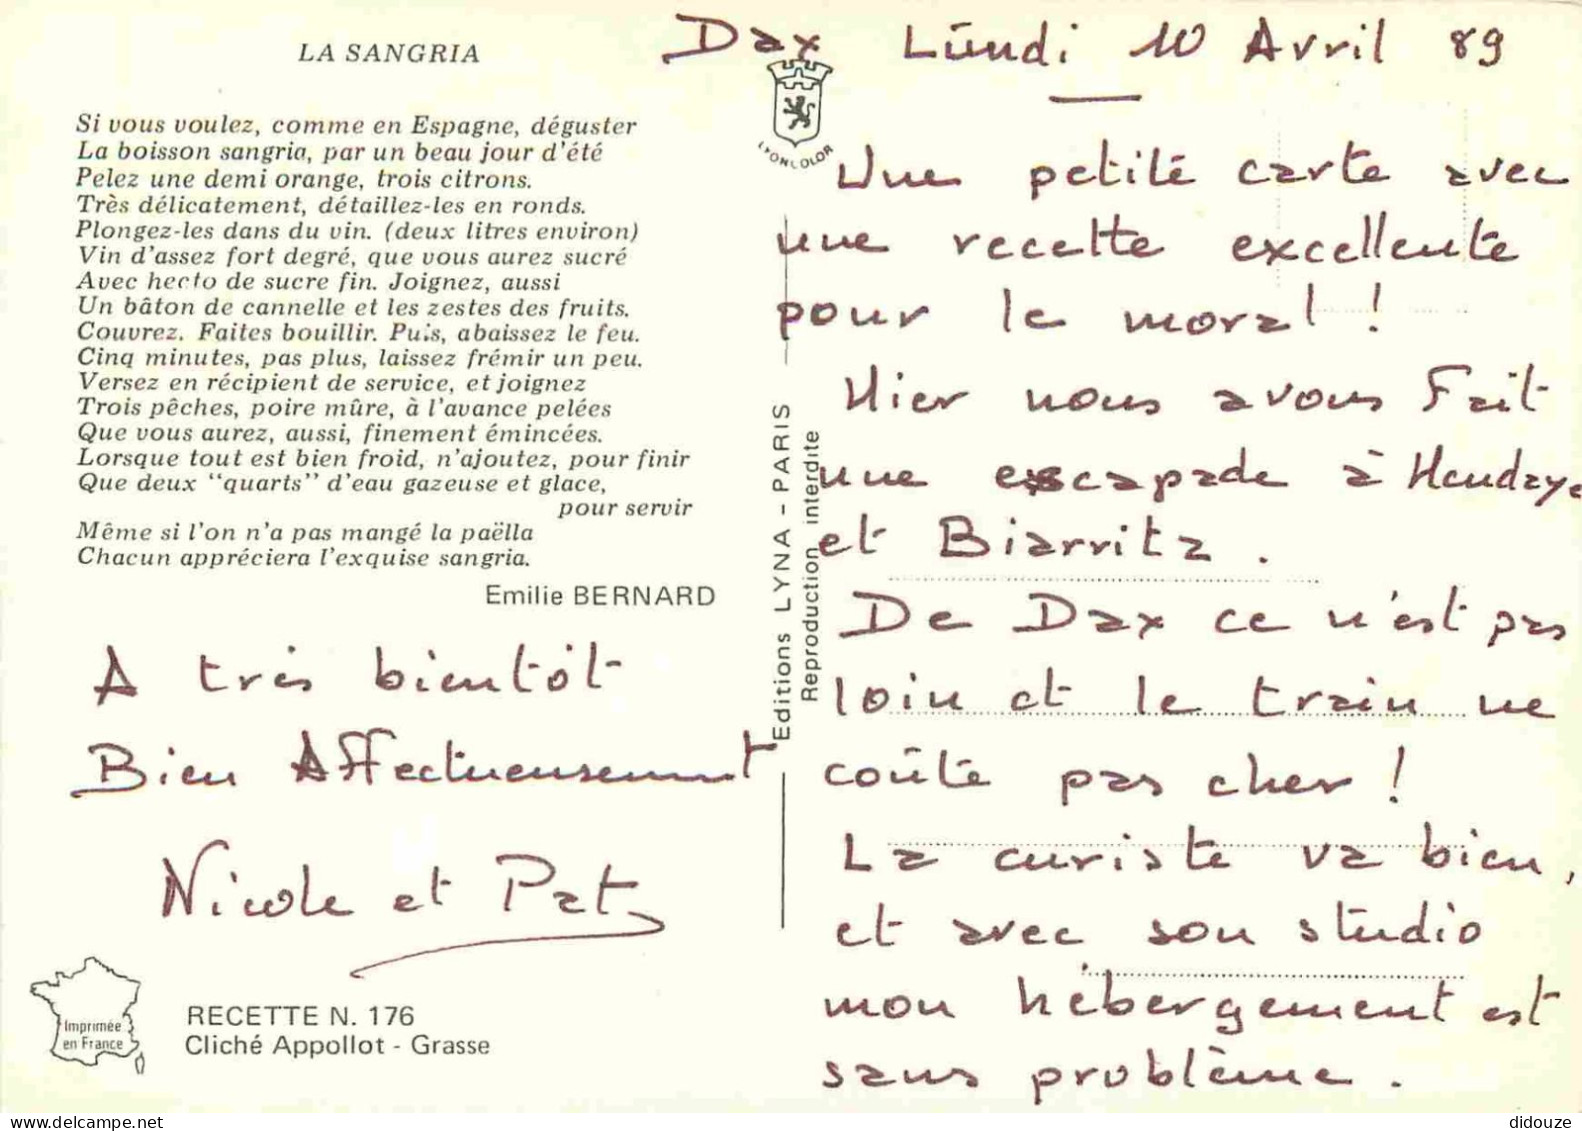 LA SANGRIA
Si vous voulez, comme en Espagne, déguster
La boisson sangria, par un beau jour d'été
Pelez une demi orange, trois citrons.
Très délicatement, détaillez-les en ronds.
Plongez-les dans du vin. (deux litres environ)
Vin d'assez fort degré, que vous aurez sucré
Avec hecto de sucre fin. Joignez, aussi
Un bâton de cannelle et les zestes des fruits.
Couvrez. Faites bouillir. Puis, abaissez le feu.
Cinq minutes, pas plus, laissez frémir un peu.
Versez en récipient de service, et joignez
Trois pêches, poire mûre, à l'avance pelées
Que vous aurez, aussi, finement émincées.
Lorsque tout est bien froid, n'ajoutez, pour finir
Que deux "quarts" d'eau gazeuse et glace,
pour servir
Même si l'on n'a pas mangé la paëlla
Chacun appréciera l'exquise sangria.
Emilie BERNARD
A très bientôt
Bien Affectueusement
Nicole et Pat
Imprimée
en France
RECETTE N. 176
Cliché Appollot - Grasse
LYONCOLOR
Editions LYNA - PARIS
Reproduction interdite
Dax Lundi 10 Avril 89
Une petite carte avec
une recette excellente
pour le moral !
Hier nous avons Fait
une escapade à Hendaye
et Biarritz.
De Dax ce n'est pas
loin et le train ne
coûte pas cher !
La curiste va bien,
et avec son studio
mon hébergement est
sans problème.
didouze